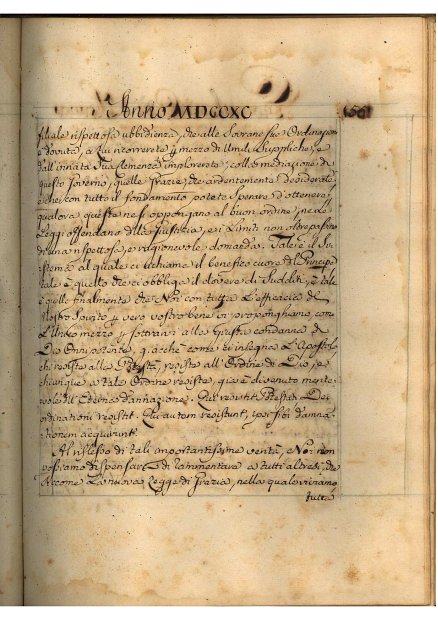 Anno MDCCXC
filiale rispettosa ubbidienza, che alle Sovrane sue Ordinazioni
è dovuta, a Lui ricorrerete per mezzo di Umili Suppliche, e
dall'innata Sua Clemenza implorerete, colla mediazione di
questo Governo, quelle Grazie, che ardentemente desiderate
e che con tutto il fondamento potete sperare d'ottenere
qualora queste nè si oppongano al buon ordine, nè Le
Leggi offendano della Giustizia, e i Limiti non oltrepassino
di una rispettosa, e ragionevole domanda. Tale è il
al quale ci richiama il benefico cuore del Principe
tale è quello che ci obbliga il dovere di Sudditi, e tale
è quello finalmente che Noi con tutta L'efficacia del
Nostro Spirito per vero vostro bene vi proponghiamo, come
L'Unico mezzo per sottrarvi alla giusta condanna di
Dio Onnipotente, giacchè come c'insegna L'Apostolo
chi resiste alla Potestà, resiste all'Ordine di Dio, e
chiunque a tale Ordine resiste, già è divenuto merite-
vole di Eterna dannazione. Qui resistit Potestati Dei
ordinationi resistit. Qui autem resistunt, ipsi sibi damna-
tionem acquirunt.
Al riflesso di tali importantissime verità, Noi non
possiamo dispensarci di rammentare a tutti altresì, che
siccome La nuova Legge di Grazia, nella quale viviamo
tutta